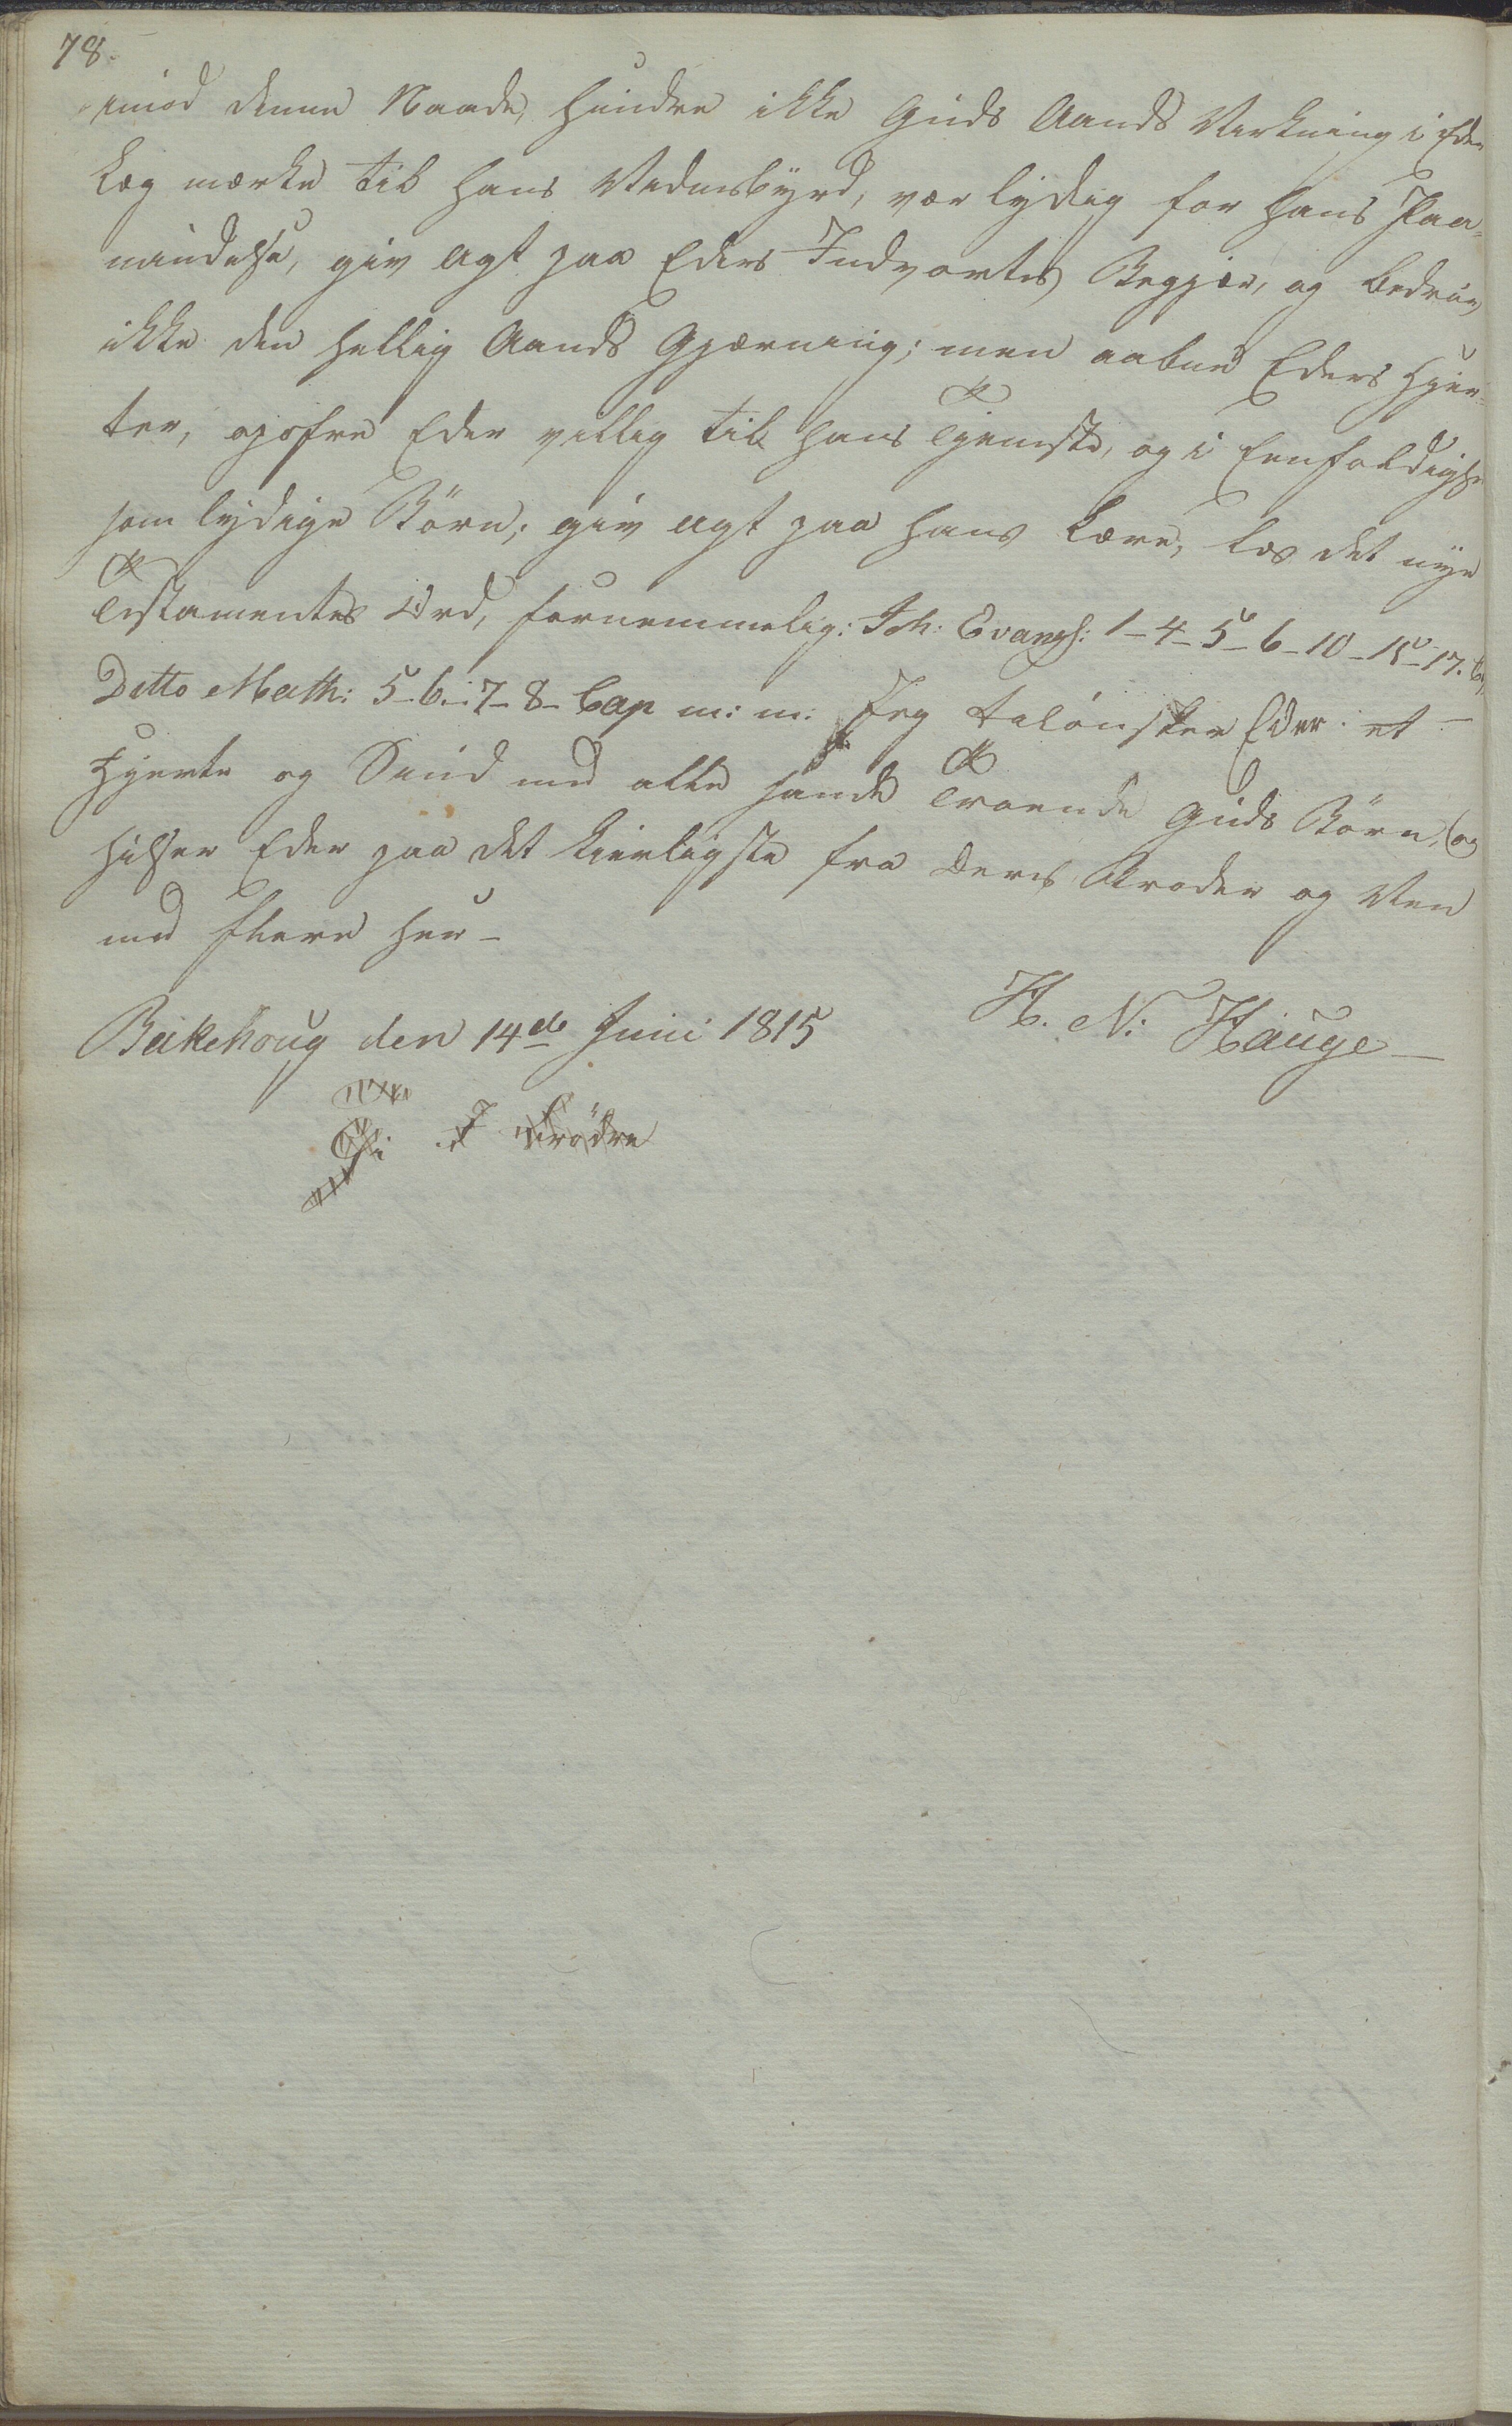 78.
imod denne Naade, hindre ikke Guds Aands Virkning i Eder
Læg mærke til hans Vidnesbyrd, vær lydig for hans Paa-
mindelse, giv Agt paa Eders Indvortes Begjær, og bedrøv
ikke den hellig Aands Gjærning; men aabne Eders Hjer-
ter, opofre Eder villig til hans Tjeneste, og i Eenfoldighe
som lydige Börn; giv Agt paa hans Lære, læs det nye
Testamentes Ord, fornemmelig: Joh: Evangl: 1-4-5-6-10-15-17.
Ditto Math: 5-6-7-8- Cap m: m: Jeg tilönsker Eder et
Hjerte og Sind med alle sande Troende Guds Börn, og
hilser Eder paa det kierligste fra Deres Broder og Ven
med flere her-
H. N: Hauge
Bakkehoug den 14de Juni 1815
Brödre